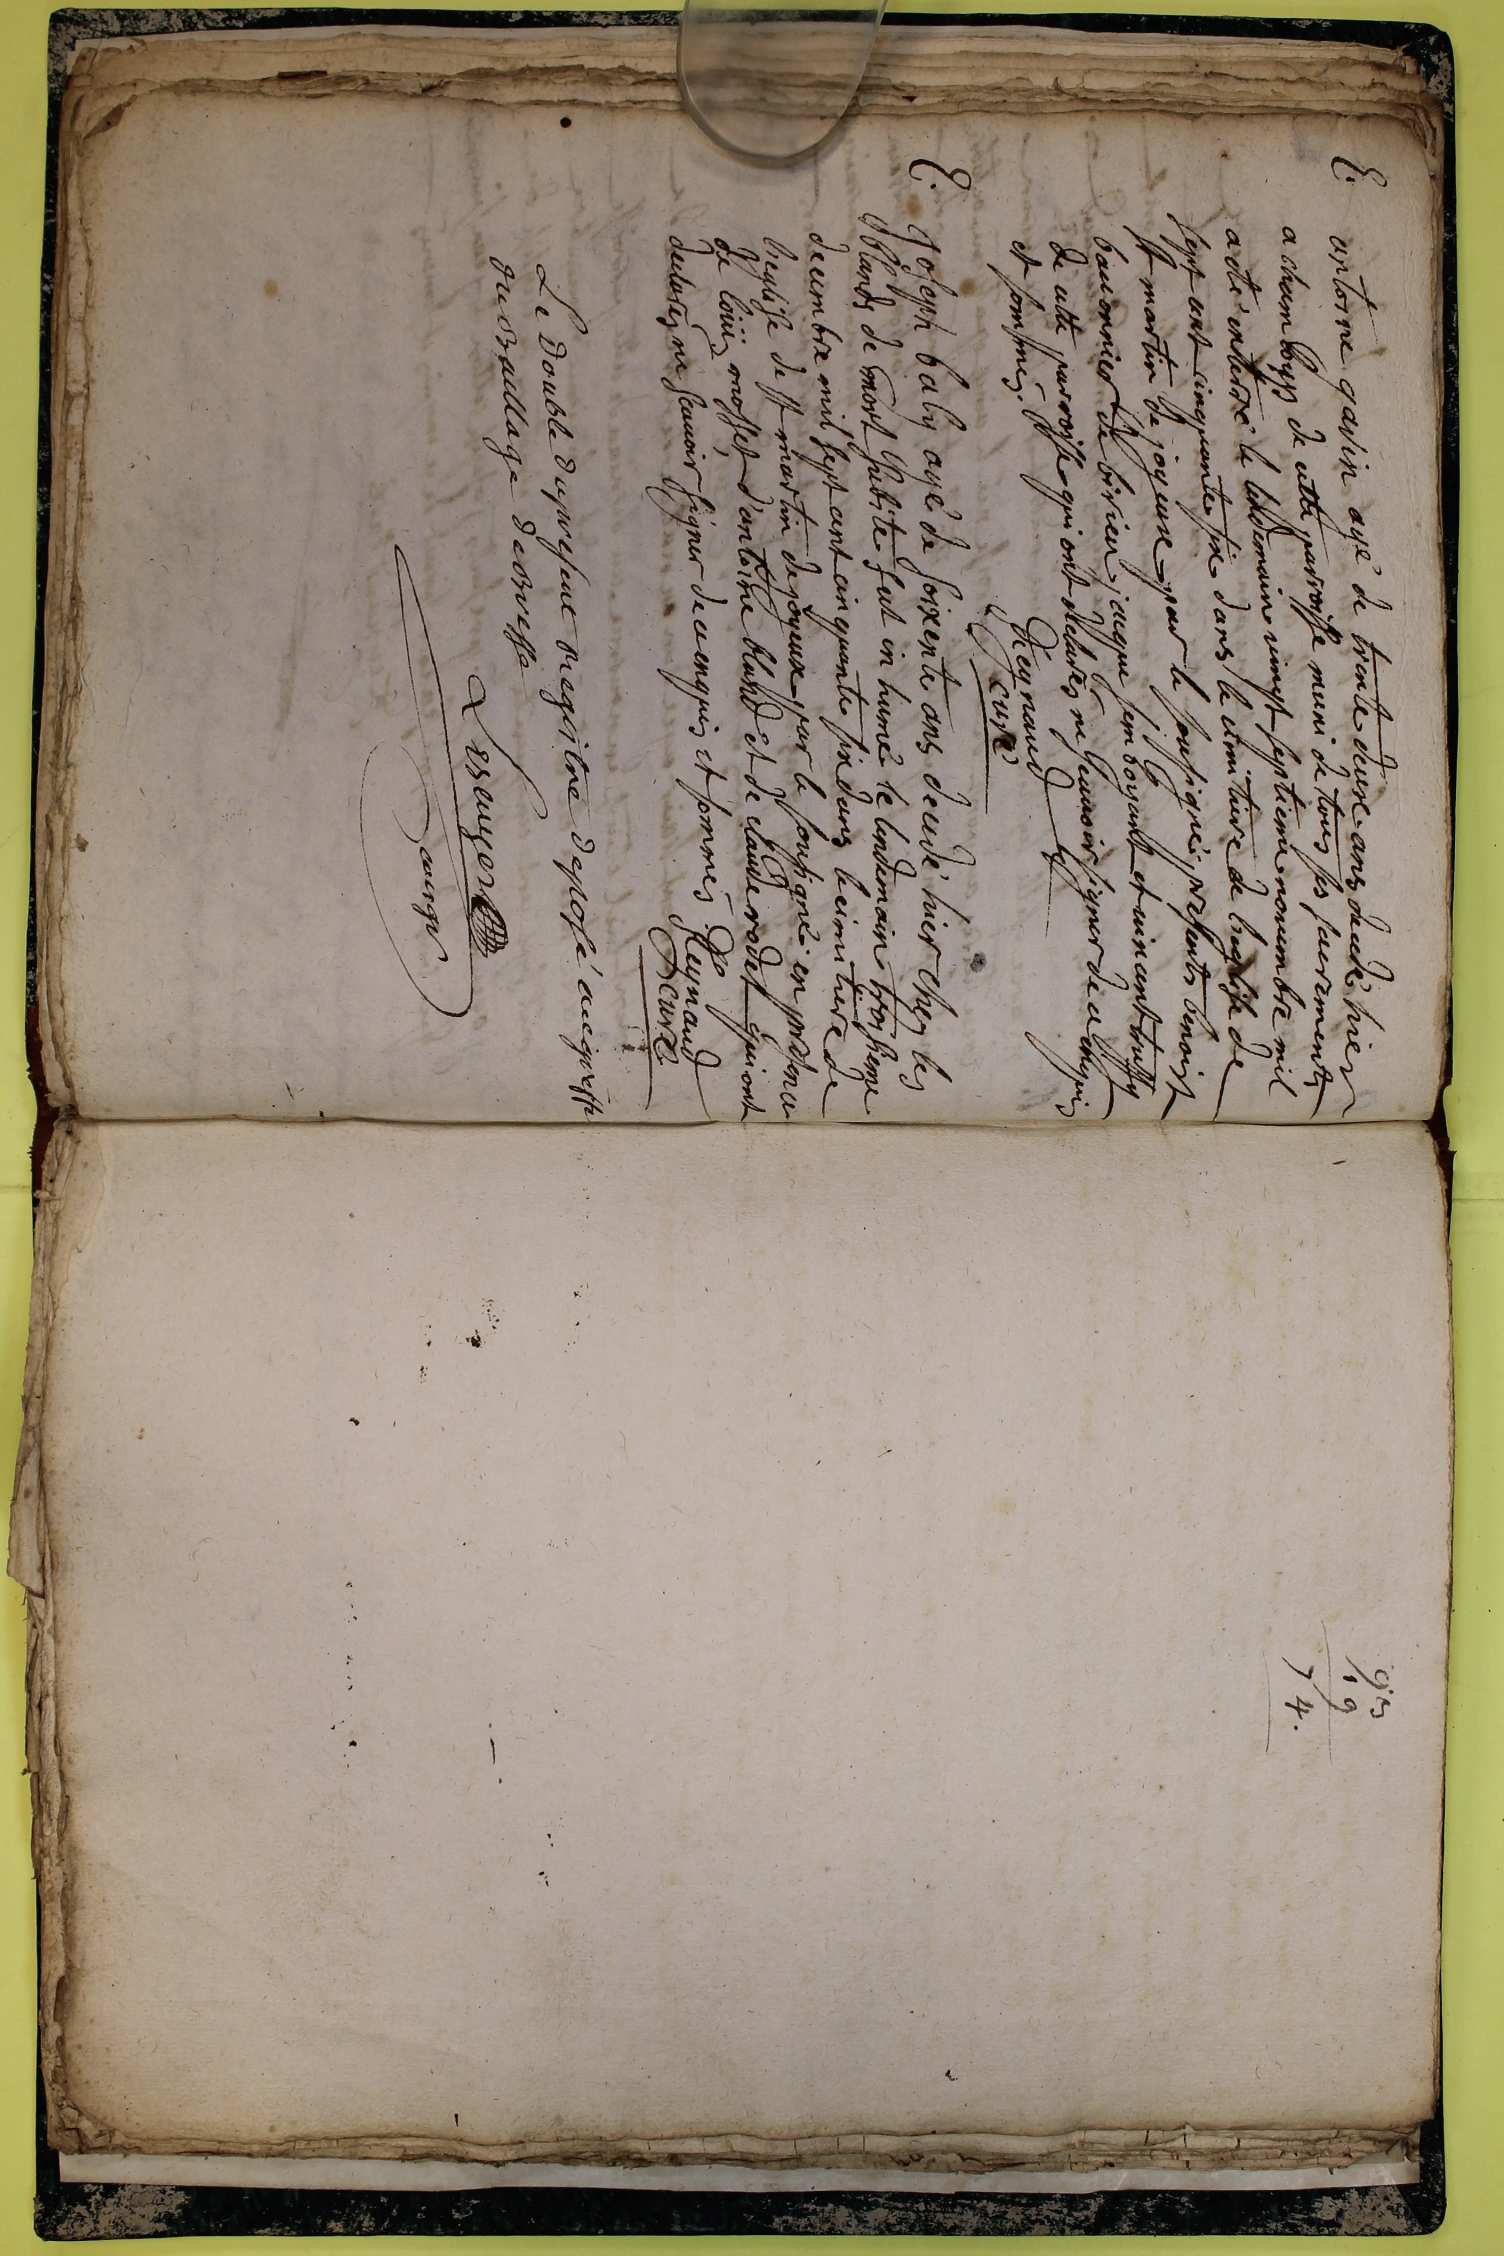 E. antoine gavin agé de trente deux ans decedé hier
a chamboyss de cette parroisse muni de tous ses sacrements
a eté enterré le lendemain vingt septieme novembre mil
sept cent cinquante six dans le cimitiere de leglise de
st martin de joyeuse par le soussigné presents benoist
bavonnier de birieu jacque semboyant et vincent truffy
de cette parroisse qui ont declarés ne scavoir signer de ce enquis
et sommés. Reynaud
curé
E. Joseph baly agé de soixente ans decedé hier chez les
blands de mort subite fut inhumé le lendemain troisieme
decembre mil sept cent cinquante six dans le cimitiere de
leglise de st martin de joyeux par le soussigné en presence
de loüis mosset d'antoine bland et de claude rodet qui ont
declarés ne scavoir signer de ce enquis et sommés. Reynaud
curé
Le double du present registre deposé au greffe
du Baillage de Bresse
a Bourg
93
19
74.